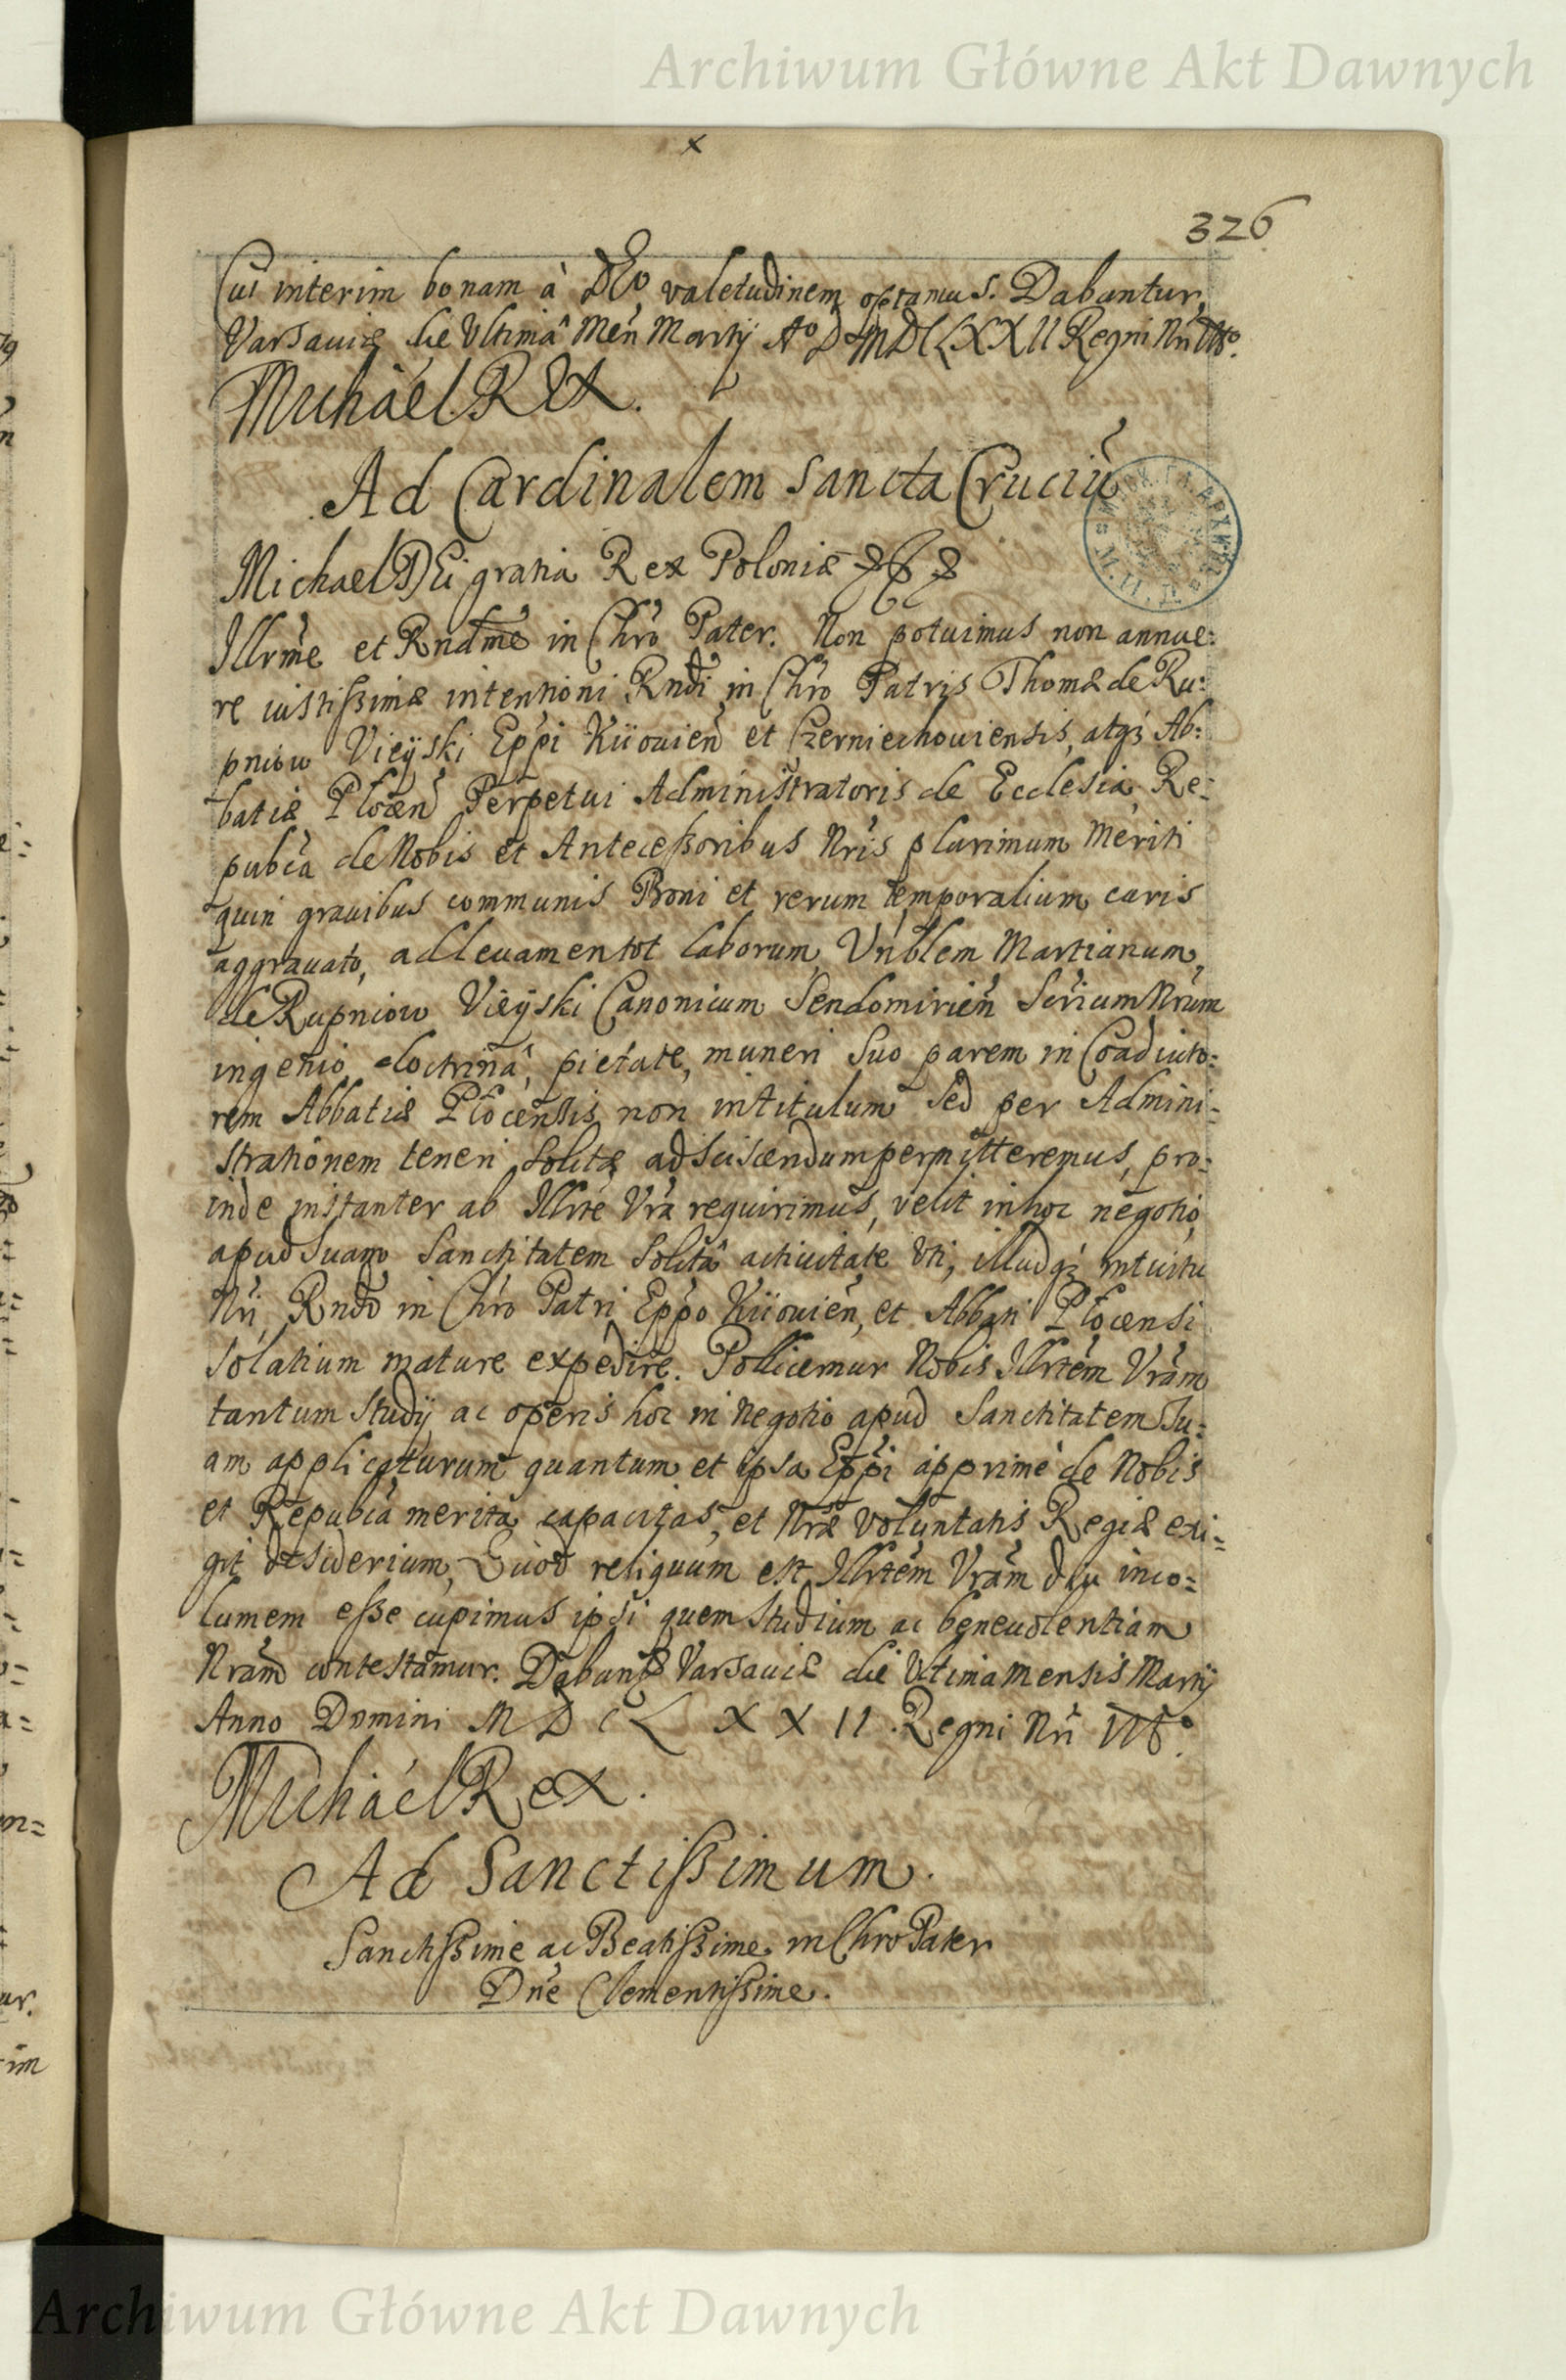 Archiwum Główne Akt Dawnych
x
326
Cui interim bonam à DEo valetudinem optamus. Dabantur,
Varsaviæ die Ultimâ Men̄ Martij Aº D MDCLXXII Regni Nri
Michaël REX.
Ad Cardinalem Sancta Cruciū
Michael DEi gratia Rex Poloniæ
Illrme et Rndme in Chro Pater. Non potuimus non annue:
re iustissimæ intentioni Rndi in Chro Patris Thomæ de Ru:
pniow Uieyski Eppi Kiiouien et Czerniechouiensis, atq3 Ab:
batiæ Plocen Perpetui Administratoris de Ecclesia, Re:
pubca de Nobis et Antecessoribus Nris plurimum Meriti
quin grauibus communis Boni et rerum temporalium curis
aggrauato, ad leuamen tot laborum, Vnblem Martianum,
de Rupniow Uieyski Canonicum Sendomirien Scrium Nrum
ingenio doctrinâ, pietate, muneri suo parem in Coadiuto:
rem Abbatiæ Plocensis non in titulum sed per Admini:
strationem teneri solitæ adsciscendum permitteremus, pro:
inde instanter ab Illrte Vra requirimus, velit in hoc negotio,
apud Suam Sanctitatem solitâ actiuitate Uti, illudq3 intuitu
Nri, Rndo in Chro Patri Eppo Kiiouien, et Abbati Plocensi
solatium mature expedire. Pollicemur Nobis Illrtem Vram
tantum studij ac operis hoc in negotio apud Sanctitatem Su:
am applicaturum quantum et ipsa Eppi apprime de Nobis
et Repubca merita capacitas, et Nræ Voluntatis Regiæ exi:
git desiderium, Quod reliquum est Illrtem Vram diu inco:
lumem esse cupimus ipsi quem studium ac beneuolentiam
Nram contestamur. Dabantr Varsauiæ die Ultima Mensis Martij
Anno Domini MDCLXXII. Regni Nri
Michaël Rex.
Ad Sanctissimum.
Sanctissime ac Beatissime in Chro Pater
Dne Clementissime.
Archiwum Główne Akt Dawnych